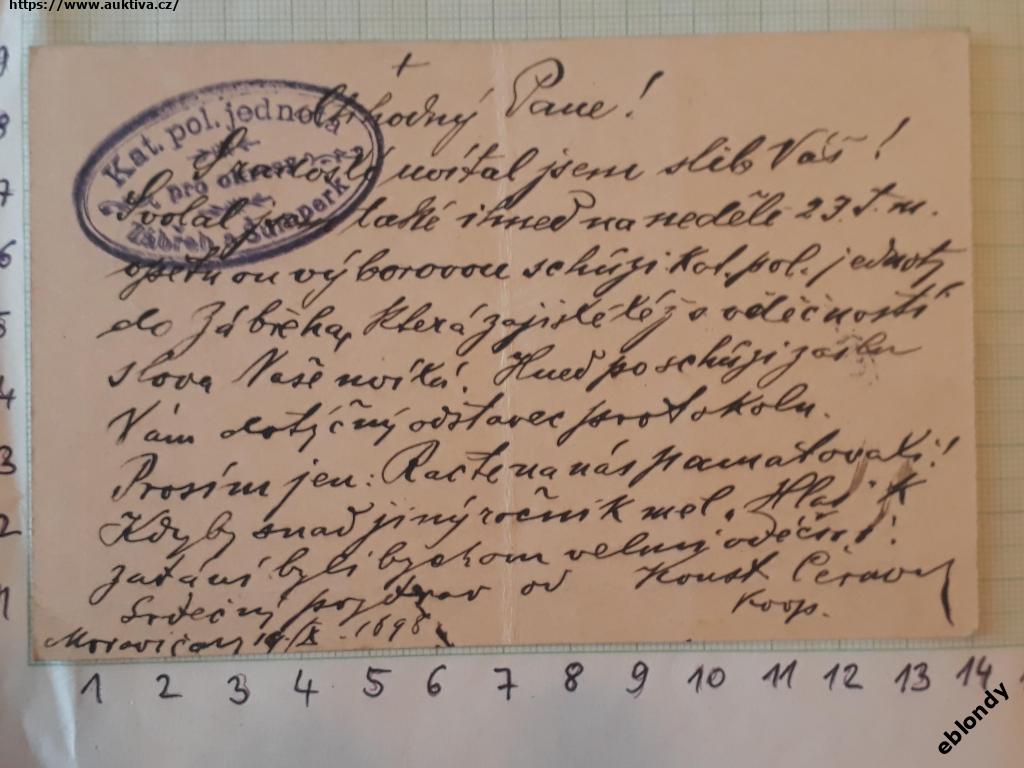 https://www.auktiva.cz/
Kat. pol. jednota
pro okres
Zábřeh a Šumperk
+
Velehodný Pane!
S radostí uvítal jsem slib Váš!
Svolal jsem také ihneď na neděli 23. t. m.
opětnou výborovou schůzi Kat. pol. jednoty
do Zábřeha, která zajisté též s vděčností
slova Vaše uvítá. Hneď po schůzi zašlu
Vám dotýčný odstavec protokolu.
Prosím jen: Račte na nás pamatovati!
Kdyby snad jiný ročník mel.
zadání byli bychom velmi vděčni!
Srdečný pozdrav od Konst. Černý
Koop.
Moravičany 19/X. 1898
9
8
7
6
5
4
3
2
1
1 2 3 4 5 6 7 8 9 10 11 12 13 14
eblondy